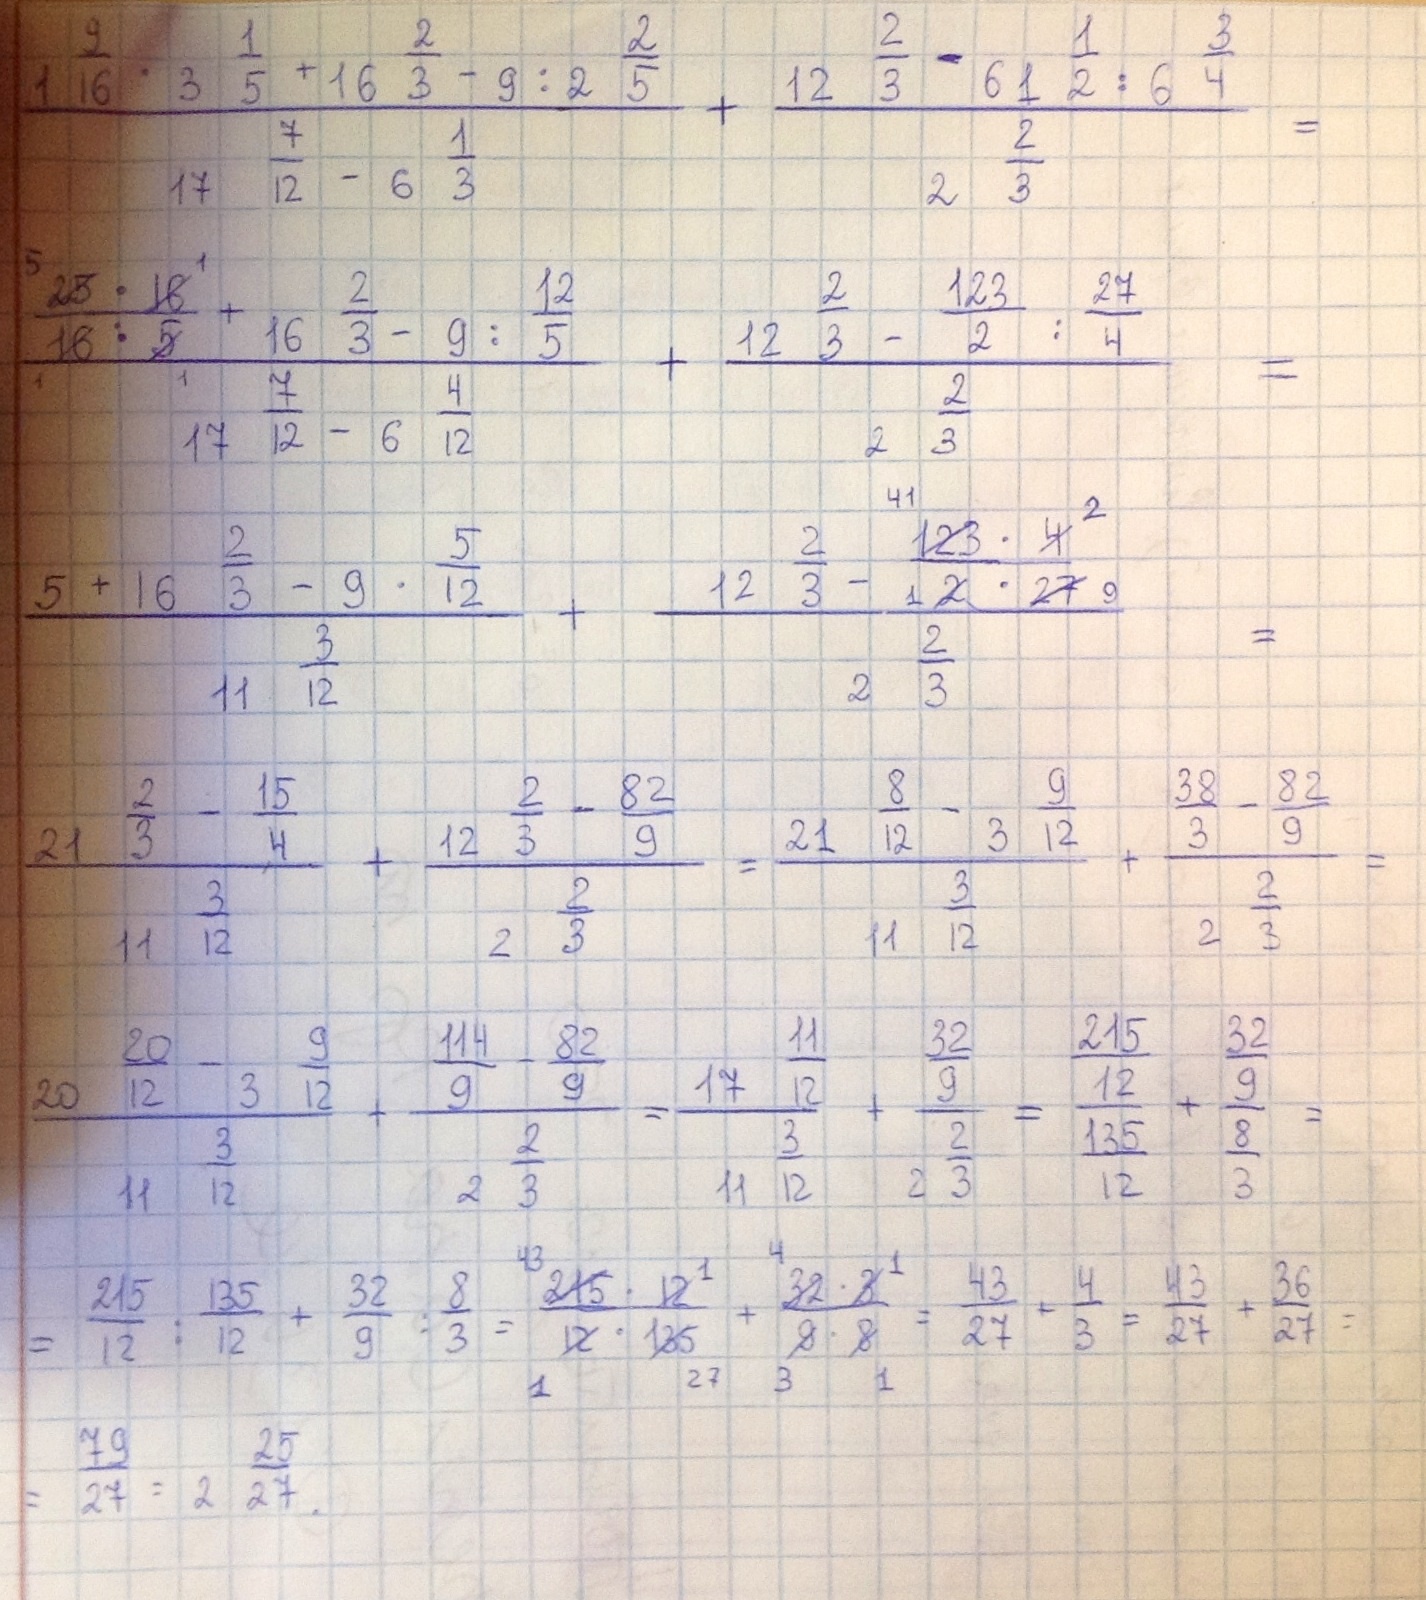 (1 9/16 · 3 1/5 + 16 2/3 - 9 : 2 2/5) / (17 7/12 - 6 1/3) + (12 2/3 - 61 1/2 : 6 3/4) / (2 2/3) =
((25 · 16) / (16 : 5) + 16 2/3 - 9 : 12/5) / (17 7/12 - 6 4/12) + (12 2/3 - 123/2 : 27/4) / (2 2/3) =
(5 + 16 2/3 - 9 · 5/12) / (11 3/12) + (12 2/3 - (123 · 4) / (2 · 27)) / (2 2/3) =
(21 2/3 - 15/4) / (11 3/12) + (12 2/3 - 82/9) / (2 2/3) = (21 8/12 - 3 9/12) / (11 3/12) + (38/3 - 82/9) / (2 2/3) =
(20 20/12 - 3 9/12) / (11 3/12) + (114/9 - 82/9) / (2 2/3) = (17 11/12) / (11 3/12) + (32/9) / (2 2/3) = (215/12) / (135/12) + (32/9) / (8/3) =
= 215/12 : 135/12 + 32/9 : 8/3 = (215 · 12) / (12 · 135) + (32 · 3) / (9 · 8) = 43/27 + 4/3 = 43/27 + 36/27 =
= 79/27 = 2 25/27.